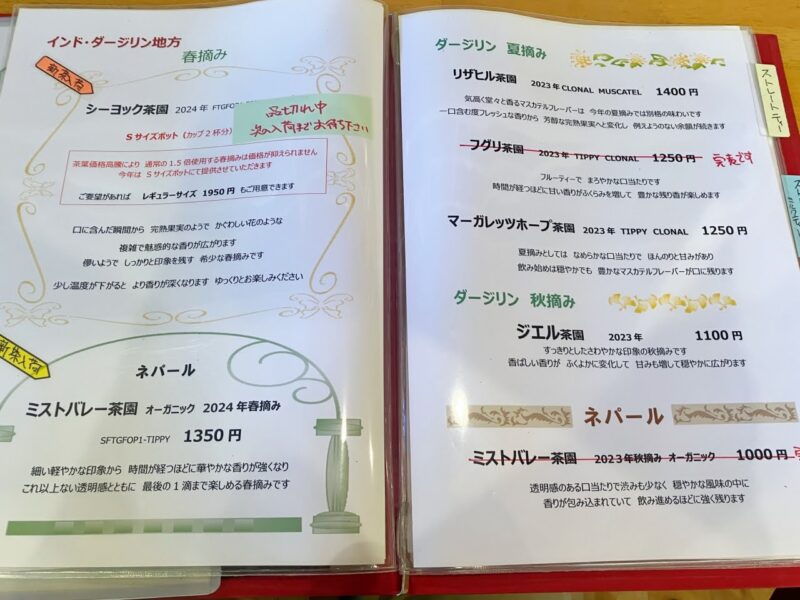 インド・ダージリン地方
春摘み
新茶入荷
シーヨック茶園 2024年
品切れ中
次の入荷までお待ち下さい
Sサイズポット(カップ2杯分)
茶葉価格高騰により 通常の1.5倍使用する春摘みは価格が抑えられません
今年は Sサイズポットにて提供させていただきます
ご要望があれば レギュラーサイズ 1950円 もご用意できます
口に含んだ瞬間から 完熟果実のようで かぐわしい花のような
複雑で魅惑的な香りが広がります
儚いようで しっかりと印象を残す 希少な春摘みです
少し温度が下がると より香りが深くなります ゆっくりとお楽しみください
新茶入荷
ネパール
ミストバレー茶園 オーガニック 2024年春摘み
SFTGFOP1-TIPPY 1350円
細い軽やかな印象から 時間が経つほどに華やかな香りが強くなり
これ以上ない透明感とともに 最後の1滴まで楽しめる春摘みです
ダージリン 夏摘み
リザヒル茶園 2023年 CLONAL MUSCATEL 1400円
気高く堂々と香るマスカテルフレーバーは 今年の夏摘みでは別格の味わいです
一口含む度フレッシュな香りから 芳醇な完熟果実へと変化し 例えようのない余韻が続きます
フグリ茶園 2023年 TIPPY CLONAL 1250円 完売です
フルーティーで まろやかな口当たりです
時間が経つほどに甘い香りがふくらみを増して 豊かな残り香が楽しめます
マーガレッツホープ茶園 2023年 TIPPY CLONAL 1250円
夏摘みとしては なめらかな口当たりで ほんのりと甘みがあり
飲み始めは穏やかでも 豊かなマスカテルフレーバーが口に残ります
ダージリン 秋摘み
ジエル茶園 2023年 1100円
すっきりとしたさわやかな印象の秋摘みです
香ばしい香りが ふくよかに変化して 甘みも増して穏やかに広がります
ネパール
ミストバレー茶園 2023年秋摘み オーガニック 1000円
透明感のある口当たりで渋みも少なく 穏やかな風味の中に
香りが包み込まれていて 飲み進めるほどに強く残ります
ストレートティー